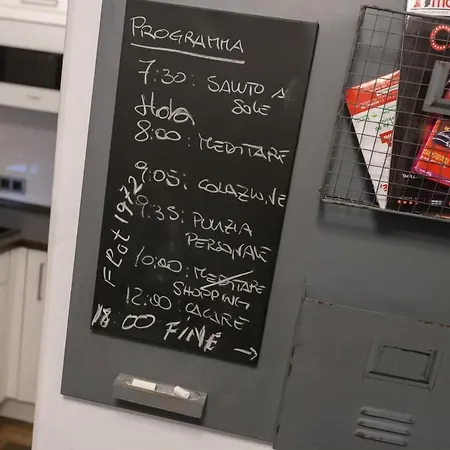 PROGRAMMA
7:30: SALUTO AL
SOLE
Hola
8:00: MEDITARE
9:05: COLAZIONE
9:35: PULIZIA
PERSONALE
10:00: MEDITARE
SHOPPING
12:00: CACARE
18:00 FINE →
FLAT 1972